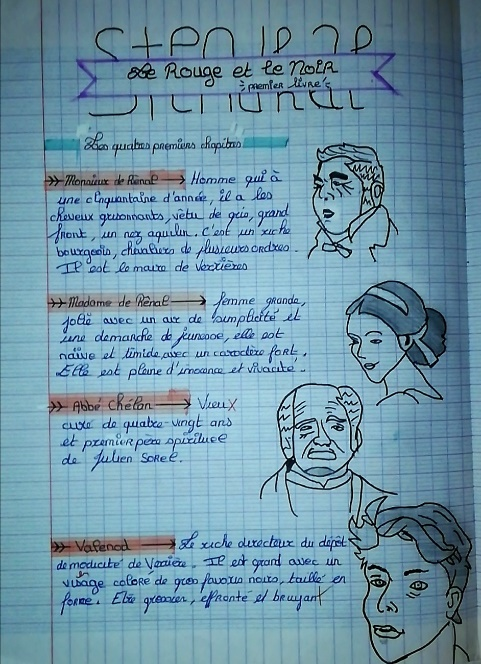 Stendhal
Le Rouge et le Noir
: premier livre :
Les quatres premiers chapitres
Monsieur de Rênal → Homme qui à
une cinquantaine d'année, il a les
cheveux grisonnants, vêtu de gris, grand
front, un nez aquilin. C'est un riche
bourgeois, chevaliers de plusieurs ordres.
Il est le maire de Verrières
Madame de Rênal → femme grande,
jolie avec un air de simplicité et
une demarche de jeunesse, elle est
naïve et timide, avec un caractère fort.
Elle est pleine d'inocence et vivacité.
Abbé Chélan → Vieux
curé de quatre-vingt ans
et premier père spirituel
de Julien Sorel.
Valenod → Le riche directeur du dépôt
de modicité de Verière. Il est grand avec un
visage coloré de gros favoris noirs, taillé en
force. Etre grossier, effronté et bruyant